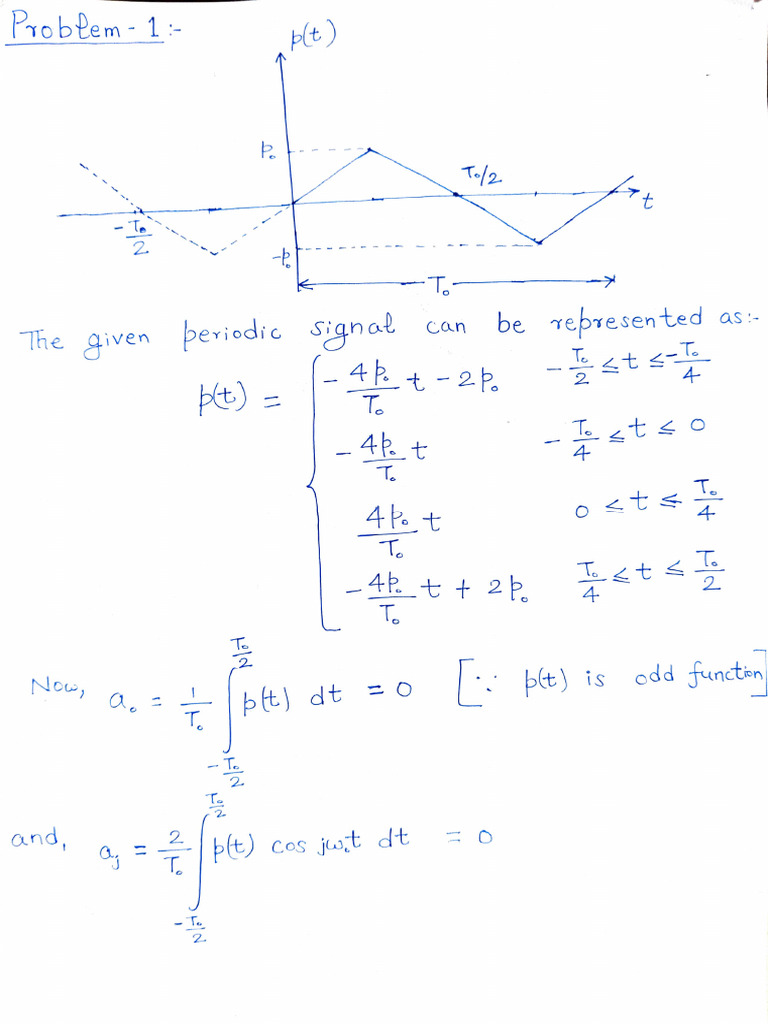 Problem - 1 :-
p(t)
p₀
T₀/2
t
-T₀/2
-p₀
T₀
The given periodic signal can be represented as:-
p(t) = { -4p₀/T₀ t - 2p₀    -T₀/2 ≤ t ≤ -T₀/4
-4p₀/T₀ t    -T₀/4 ≤ t ≤ 0
4p₀/T₀ t    0 ≤ t ≤ T₀/4
-4p₀/T₀ t + 2p₀    T₀/4 ≤ t ≤ T₀/2
Now, a₀ = 1/T₀ ∫_{-T₀/2}^{T₀/2} p(t) dt = 0 [∵ p(t) is odd function]
and, aⱼ = 2/T₀ ∫_{-T₀/2}^{T₀/2} p(t) cos jω₀t dt = 0